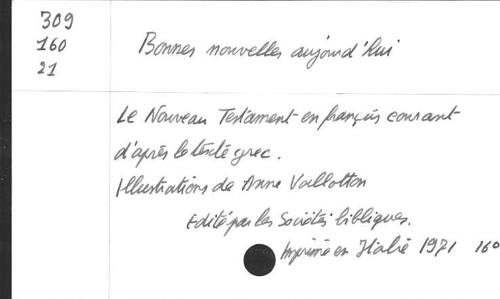 309
160
21
Bonnes nouvelles aujourd'hui
Le Nouveau Testament en français courant
d'après le texte grec.
Illustrations de Anne Vallotton
Edité par les Sociétés bibliques.
Imprimé en Italie 1971 160